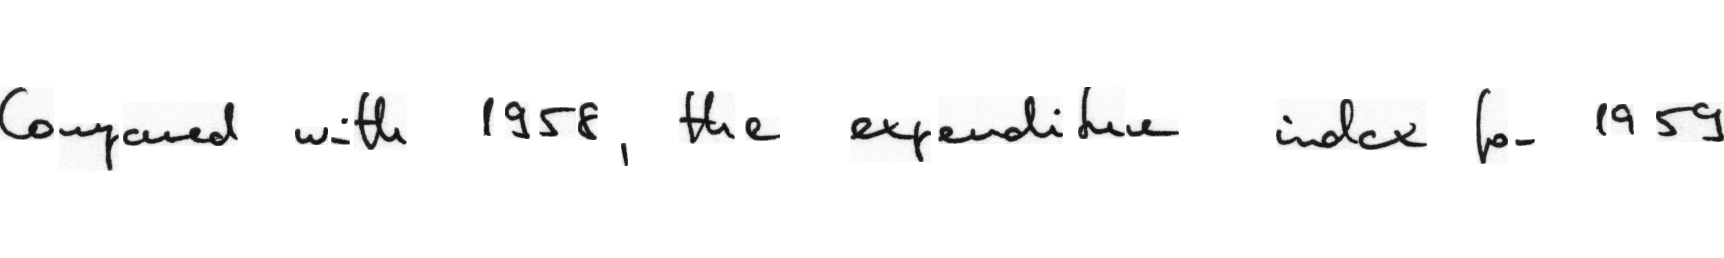 Compared with 1958, the expenditure index for 1959